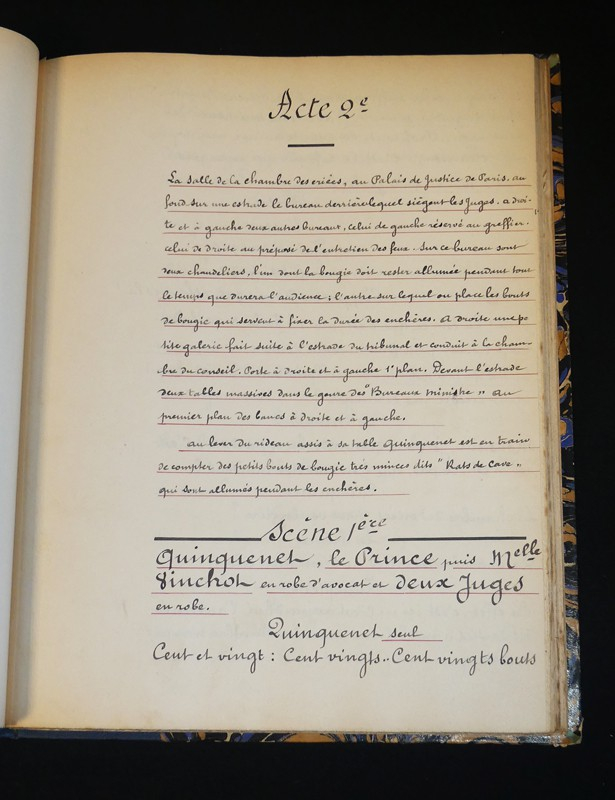 Acte 2e
La salle de la chambre des criées, au Palais de Justice de Paris. au
fond sur une estrade le bureau derrière lequel siègent les Juges. a droi-
te et à gauche deux autres bureaux, celui de gauche réservé au greffier.
celui de droite au préposé de l'entretien des feux. Sur ce bureau sont
deux chandeliers, l'un dont la bougie doit rester allumée pendant tout
le temps que durera l'audience ; l'autre sur lequel on place les bouts
de bougie qui servent à fixer la durée des enchères. A droite une pe
tite galerie fait suite à l'estrade du tribunal et conduit à la cham-
bre du conseil. Porte à droite et à gauche 1er plan. Devant l'estrade
deux tables massives dans le genre des "Bureaux Ministre" au
premier plan des bancs à droite et à gauche.
au lever du rideau assis à sa table Quinquenet est en train
de compter des petits bouts de bougie très minces dits "Rats de Cave"
qui sont allumés pendant les enchères.
Scène 1ère
Quinquenet, le Prince puis Melle
Vinchot en robe d'avocat et deux Juges
en robe.
Quinquenet seul
Cent et vingt : Cent vingts.. Cent vingts bouts